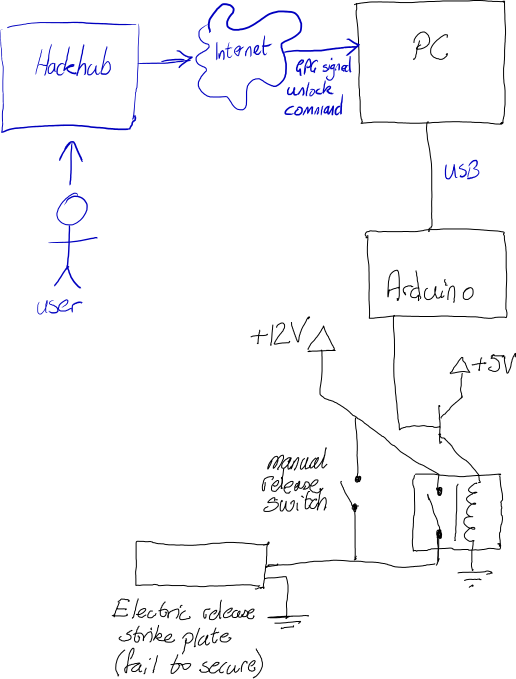 Hackhub
Internet
PC
GPG signal
unlock
command
USB
user
Arduino
+12V
+5V
manual
release
switch
Electric release
strike plate
(fail to secure)